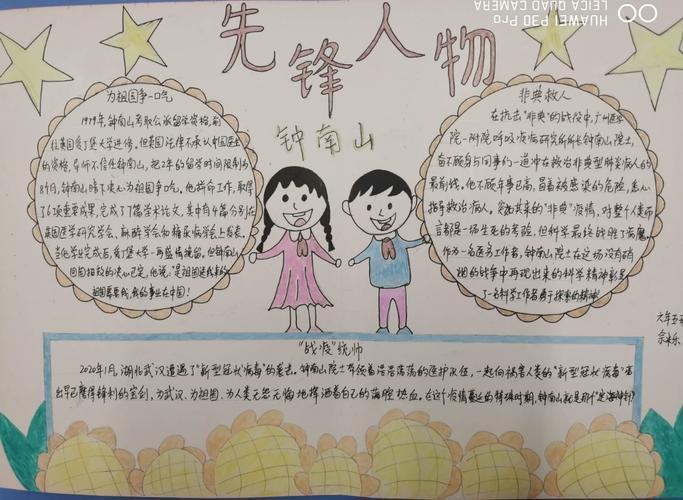 先锋人物
钟南山
为祖国争一口气
1979年,钟南山考取公派留学资格,前
往英国爱丁堡大学进修,但英国法律不承认中国医生
的资格,导师不信任钟南山,把2年的留学时间限制为
8个月,钟南山暗下决心为祖国争气,他拼命工作,取得
了6项重要成果,完成了7篇学术论文,其中有4篇分别在
英国医学研究学会、麻醉学会和糖尿病学会上发表。
当他学业完成后,爱丁堡大学一再盛情挽留,但钟南山
回国报效的决心已定,他说:"是祖国送我来的,
祖国需要我,我的事业在中国!
非典救人
在抗击"非典"的战役中,广州医学
院一附院呼吸疾病研究所所长钟南山院士,
奋不顾身与同事们一道冲在救治非典型肺炎病人的
最前线,他不顾年事已高,冒着被感染的危险,悉心
指导救治病人,突如其来的"非典"疫情,对整个人类而
言都是一场生死的考验,但科学最终战胜了病魔。
作为一名医务工作者,钟南山院士在这场没有硝
烟的战争中再现出来的科学精神彰显
了一名科学工作者勇于探索的精神!
六年五班
"战疫"统帅
2020年1月,湖北武汉遭遇了"新型冠状病毒"的袭击。钟南山院士带领着浩浩荡荡的医护队伍,一起向祸害人类的"新型冠状病毒"亮
出早磨得锋利的宝剑,为武汉、为祖国、为人类无怨无悔地挥洒着自己的满腔热血。在这个疫情蔓延的特殊时期,钟南山就是那个"定海神针"!
HUAWEI P30 Pro
LEICA QUAD CAMERA